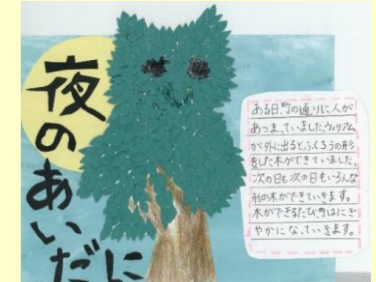 夜の
あいだ
に
ある日、町の通りに人が
あつまっていました。ウィリアム
が外に出ると、ふくろうの形
をした木ができていました。
次の日も次の日もいろんな
形の木ができていきます。
木ができるたび町はにぎ
やかになっていきます。